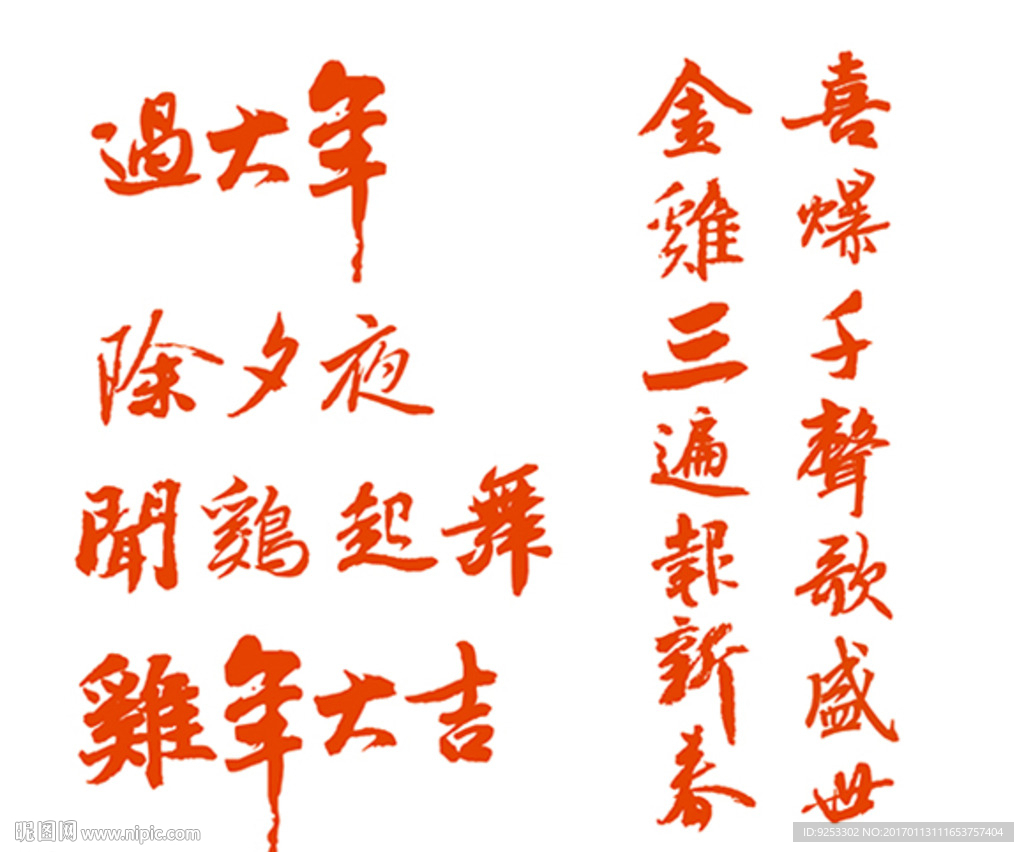 過大年
除夕夜
聞鷄起舞
雞年大吉
喜爆千聲歌盛世
金雞三遍報新春
昵图网 www.nipic.com
ID:9253302 NO:20170113111653757404